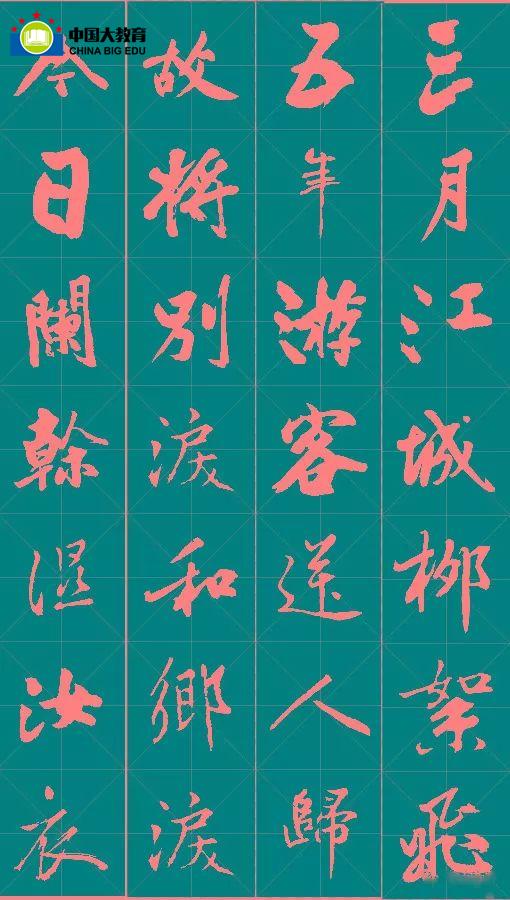 中国大教育
CHINA BIG EDU
三月江城柳絮飛
五年游客送人歸
故將別淚和鄉淚
今日闌幹濕汝衣